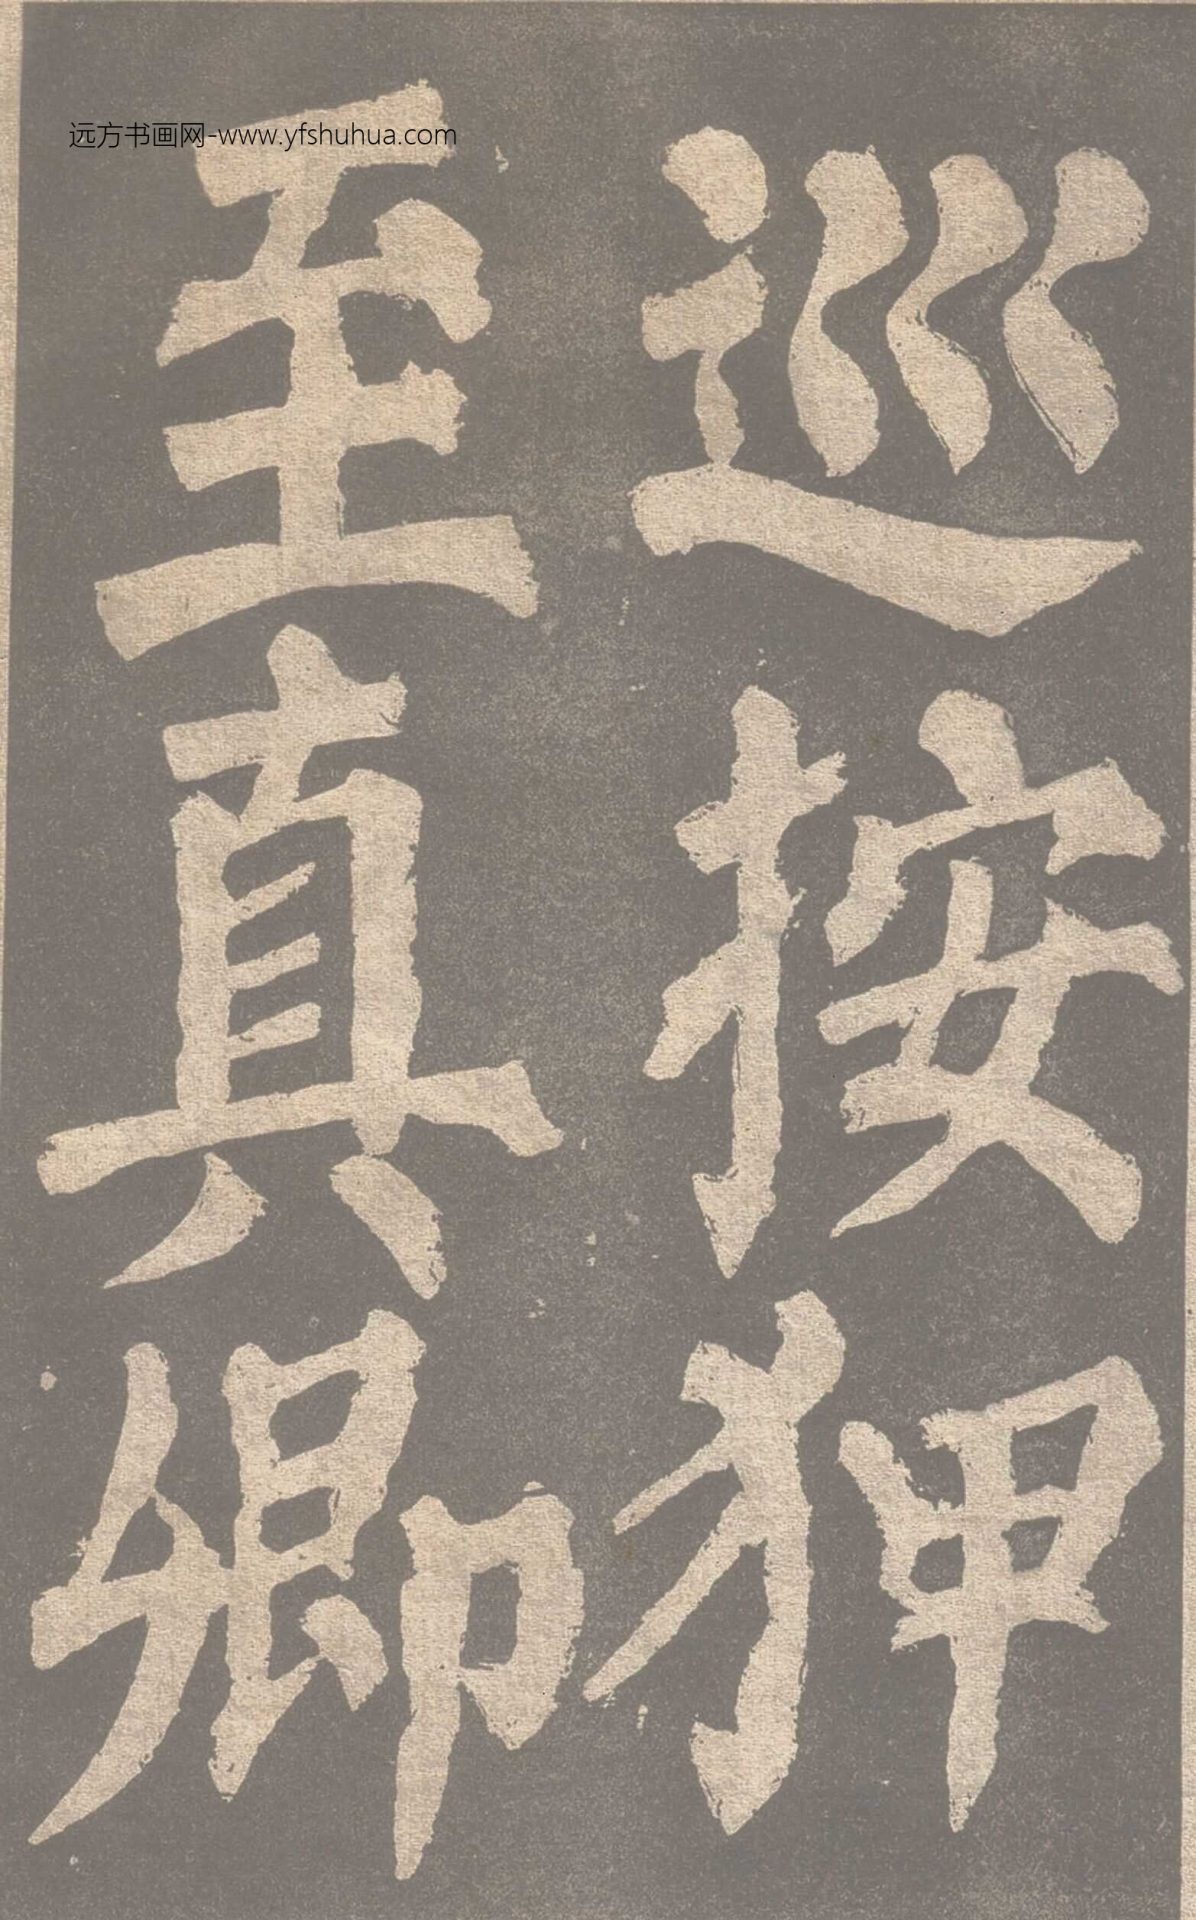 远方书画网-www.yfshuhua.com
巡按狎
至真卿